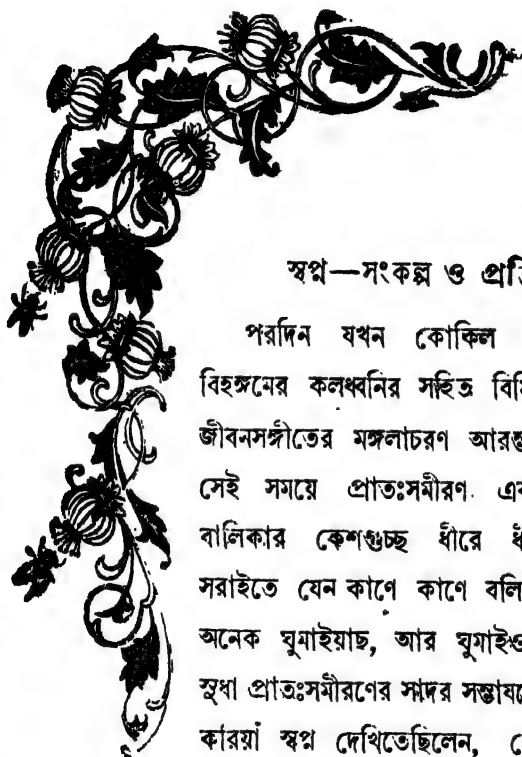 স্বপ্ন—সংকল্প ও
পরদিন যখন কোকিল
বিহঙ্গমের কলধ্বনির সহিত
জীবনসঙ্গীতের মঙ্গলাচরণ
সেই সময়ে প্রাতঃসমীরণ
বালিকার কেশগুচ্ছ ধীরে
সরাইতে যেন কাণে কাণে
অনেক ঘুমাইয়াছ, আর
সুধা প্রাতঃসমীরণের সাদর
কারয়া স্বপ্ন দেখিতেছিলেন,